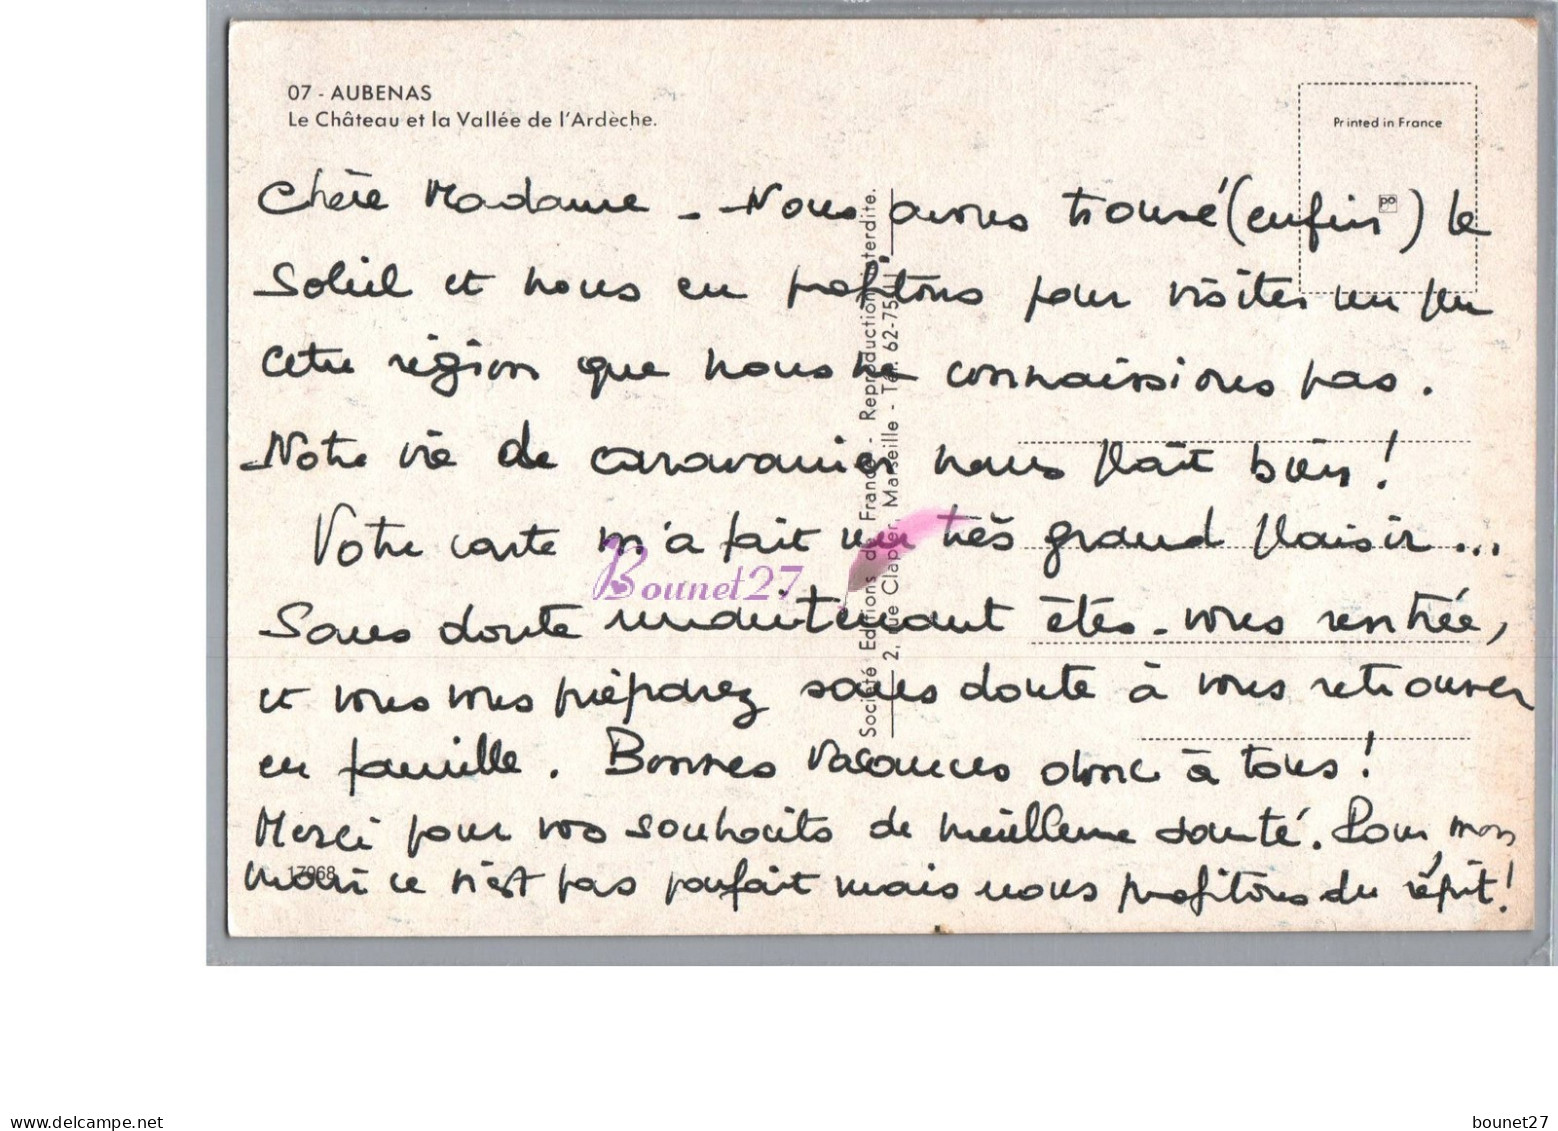 07 - AUBENAS
Le Château et la Vallée de l'Ardèche.
Printed in France
Chère Madame - Nous avons trouvé (enfin) le
Soleil et nous en profitons pour visiter un peu
cette région que nous ne connaissions pas.
Notre vie de caravanier nous plaît bien!
Votre carte m'a fait un très grand plaisir...
Sans doute maintenant êtes-vous rentrée,
et vous vous préparez sans doute à vous retrouver
en famille. Bonnes vacances donc à tous!
Merci pour vos souhaits de meilleure santé. Pour mon
mari ce n'est pas parfait mais nous profitons du répit!
17968
Société Editions de France - Reproduction interdite.
2, rue Clapier, Marseille - Tél. 62-75-11
Bounet27
www.delcampe.net
bounet27